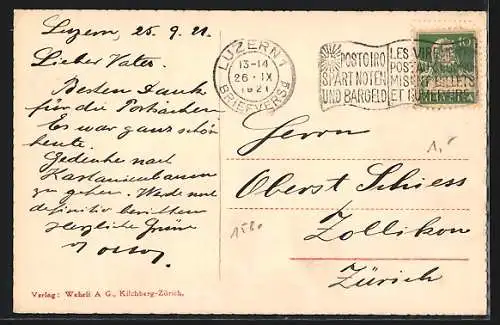 Luzern, 25. 9. 21.
Lieber Vater.
Besten Dank
für die Postsachen
Es war ganz schön
heute.
Gedenke nach
Kastanienbaum
zu gehen. Werde noch
definitiv
herzliche Grüsse
LUZERN 1
13-14
26. IX
1921
BRIEFVERSD
POSTGIRO
SPART NOTEN
UND BARGELD
LES VIRE
POST
ET
HELVETIA
1,-
Herrn
Oberst Schiess
Zollikon
Zürich
1580
Verlag: Wehrli A G., Kilchberg-Zürich.